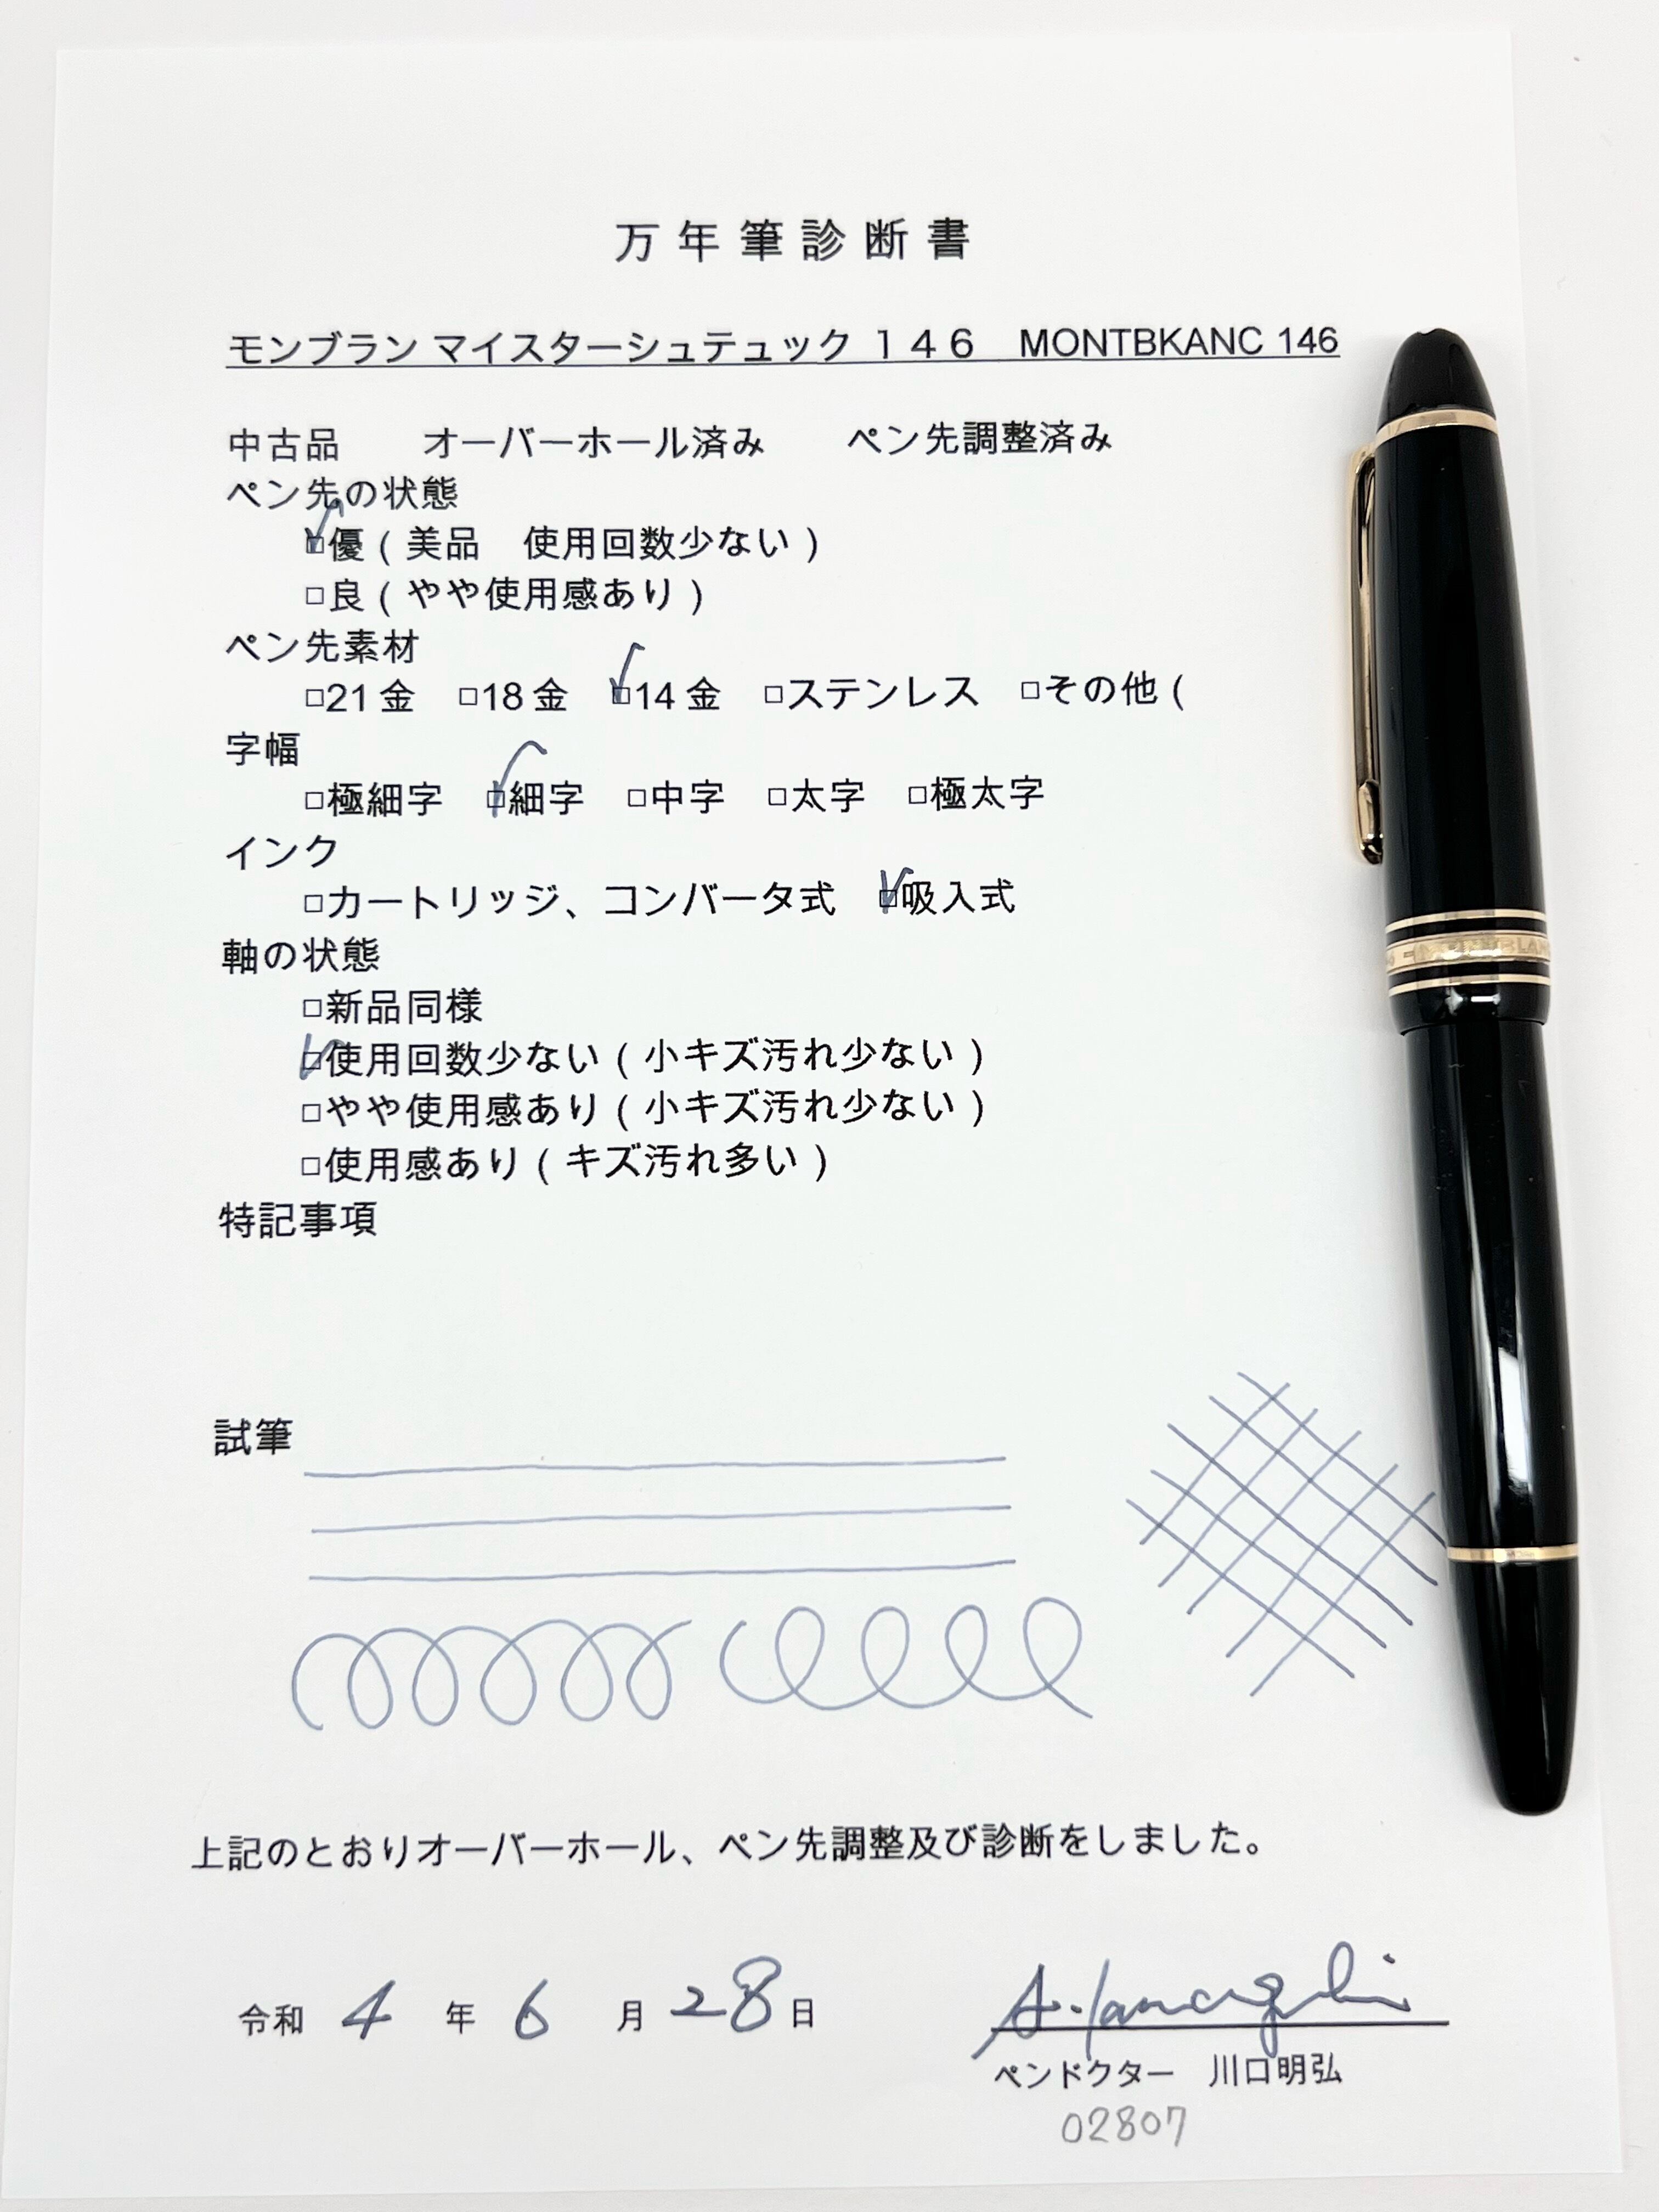 万年筆診断書
モンブラン マイスターシュテュック 146 MONTBKANC 146
中古品 オーバーホール済み ペン先調整済み
ペン先の状態
☑優(美品 使用回数少ない)
□良(やや使用感あり)
ペン先素材
□21金 □18金 ☑14金 □ステンレス □その他(
字幅
□極細字 ☑細字 □中字 □太字 □極太字
インク
□カートリッジ、コンバータ式 ☑吸入式
軸の状態
□新品同様
☑使用回数少ない(小キズ汚れ少ない)
□やや使用感あり(小キズ汚れ少ない)
□使用感あり(キズ汚れ多い)
特記事項
試筆
上記のとおりオーバーホール、ペン先調整及び診断をしました。
令和 4 年 6 月 28 日
ペンドクター 川口明弘
02807